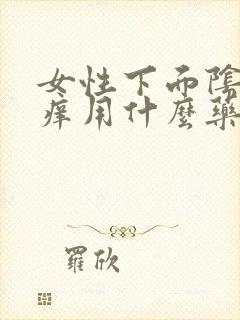 女性下面陰
痒用什麼藥
羅欣